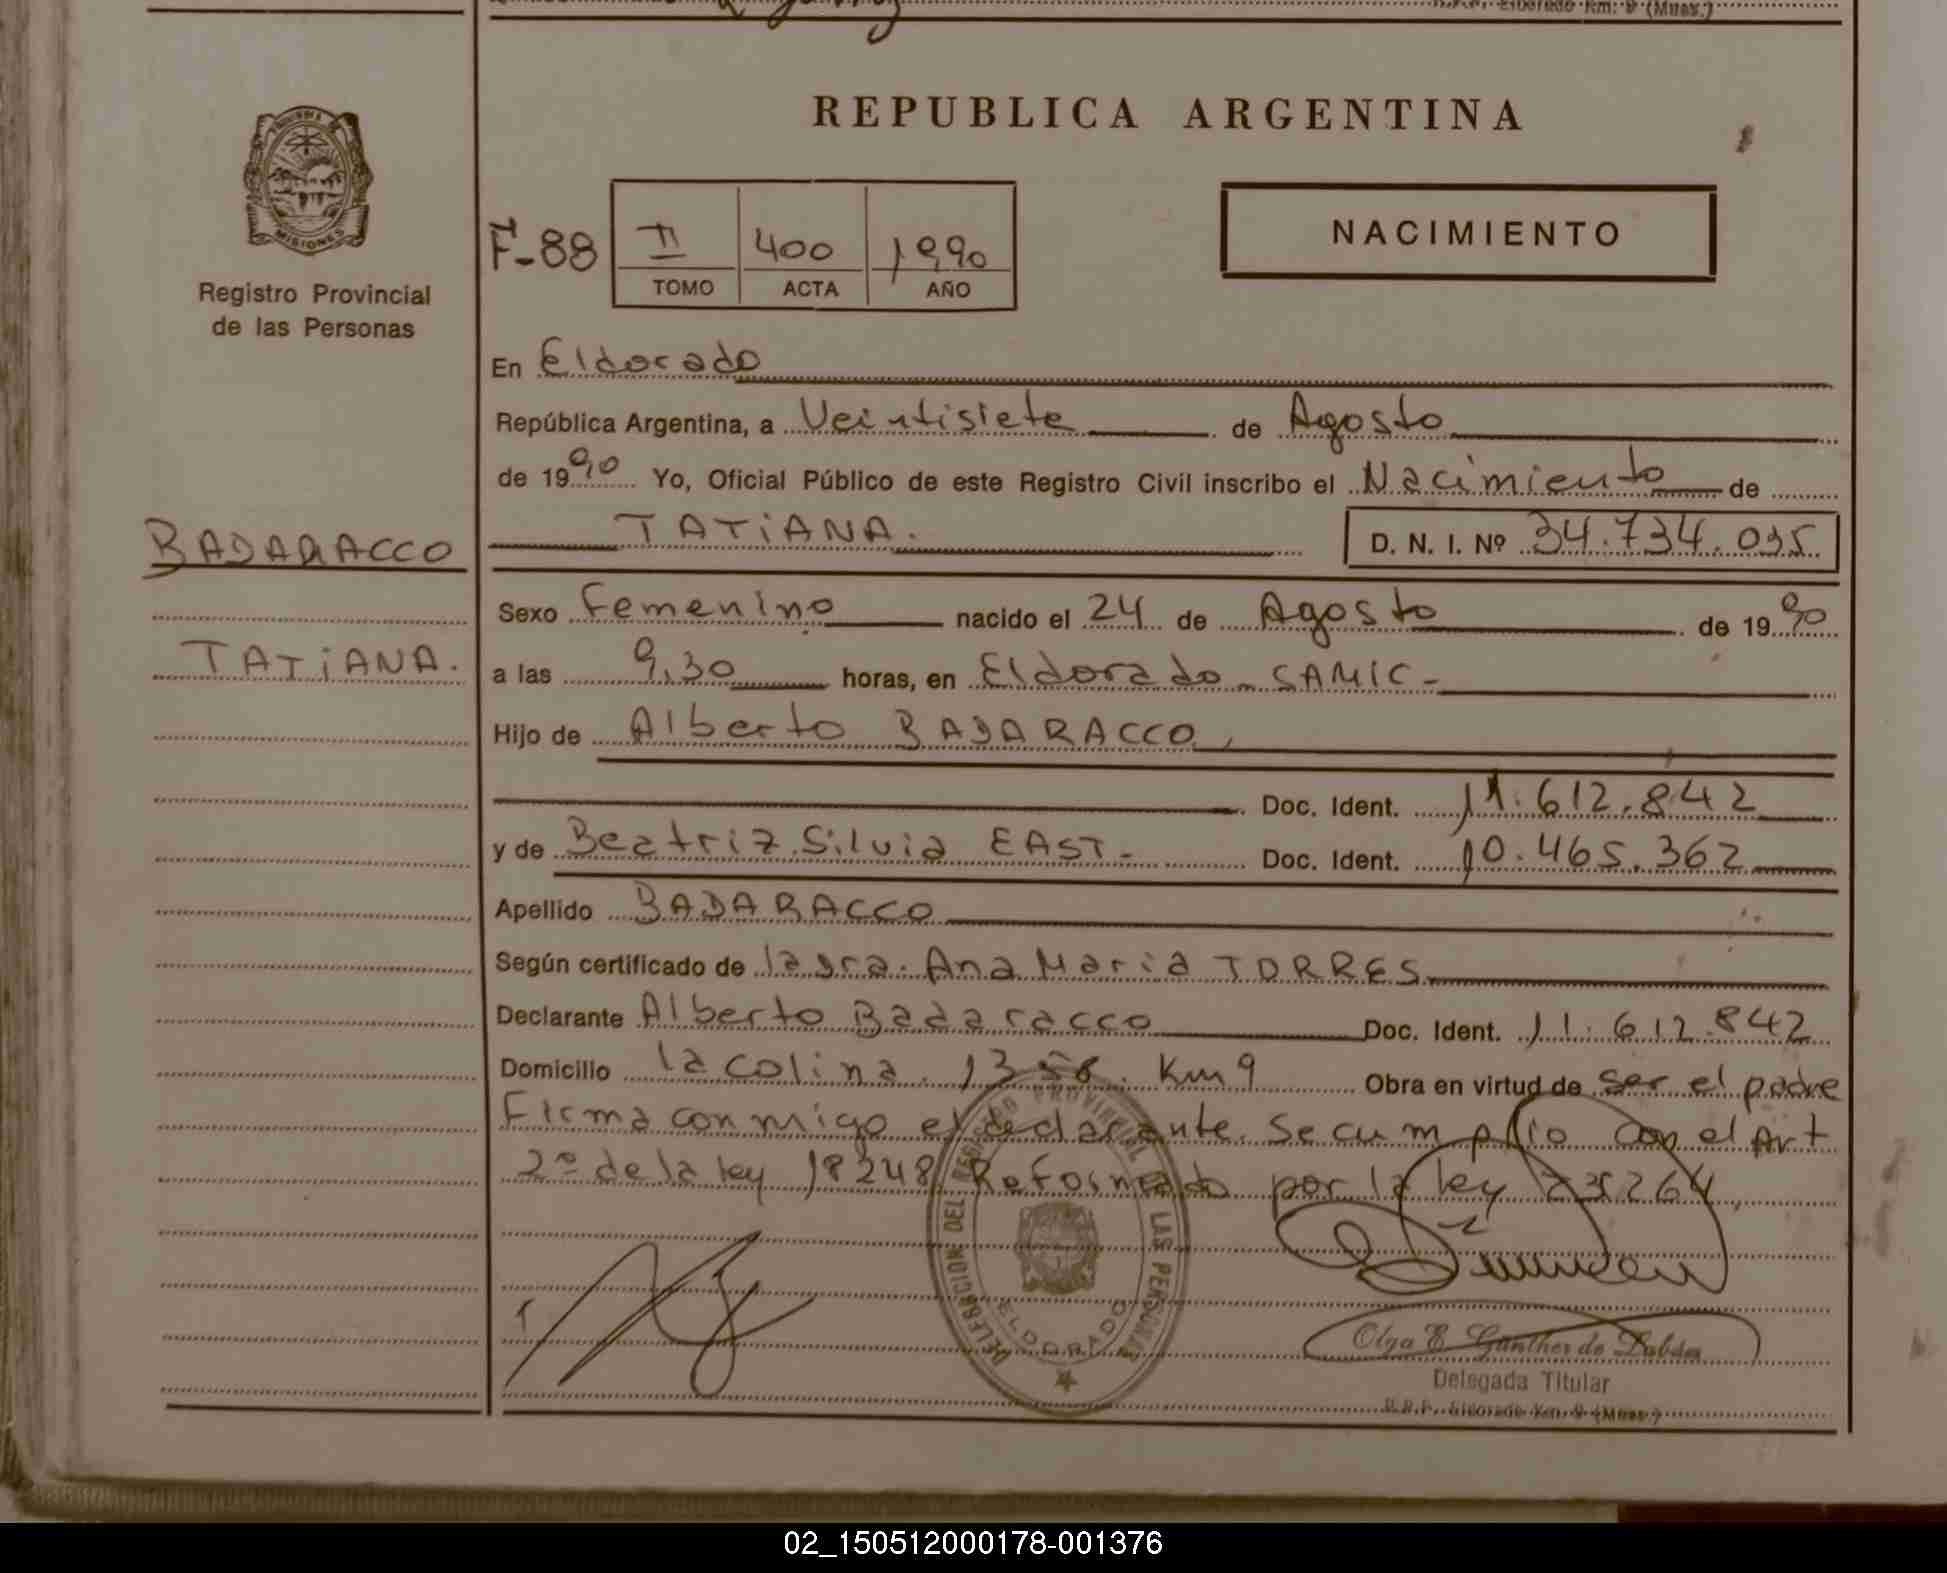 Eldorado Km: 9 (Mnes.)
REPUBLICA ARGENTINA
MISIONES
Registro Provincial
de las Personas
F-88
II 400 1990
TOMO ACTA AÑO
NACIMIENTO
En Eldorado
República Argentina, a Veintisiete de Agosto
de 1990 Yo, Oficial Público de este Registro Civil inscribo el Nacimiento de
BADARACCO
TATIANA.
TATIANA. D. N. I. Nº 34.734.035
Sexo Femenino nacido el 24 de Agosto de 1990
a las 9,30 horas, en Eldorado - SAMIC -
Hijo de Alberto BADARACCO,
Doc. Ident. 11.612.842
y de Beatriz Silvia EAST - Doc. Ident. 10.465.362
Apellido BADARACCO
Según certificado de la sra. Ana Maria TORRES
Declarante Alberto Badaracco Doc. Ident. 11.612.842
Domicilio la colina 1358. Km 9 Obra en virtud de ser el padre
Firma conmigo el declarante. Se cumplio con el Art
2º de la ley 18248 Reformado por la ley 23264,
DELEGACION DEL REGISTRO PROVINCIAL DE LAS PERSONAS
ELDORADO
Olga E. Günther de
Delegada Titular
R.P.P. Eldorado Km. 9 (Mnes.)
02_150512000178-001376